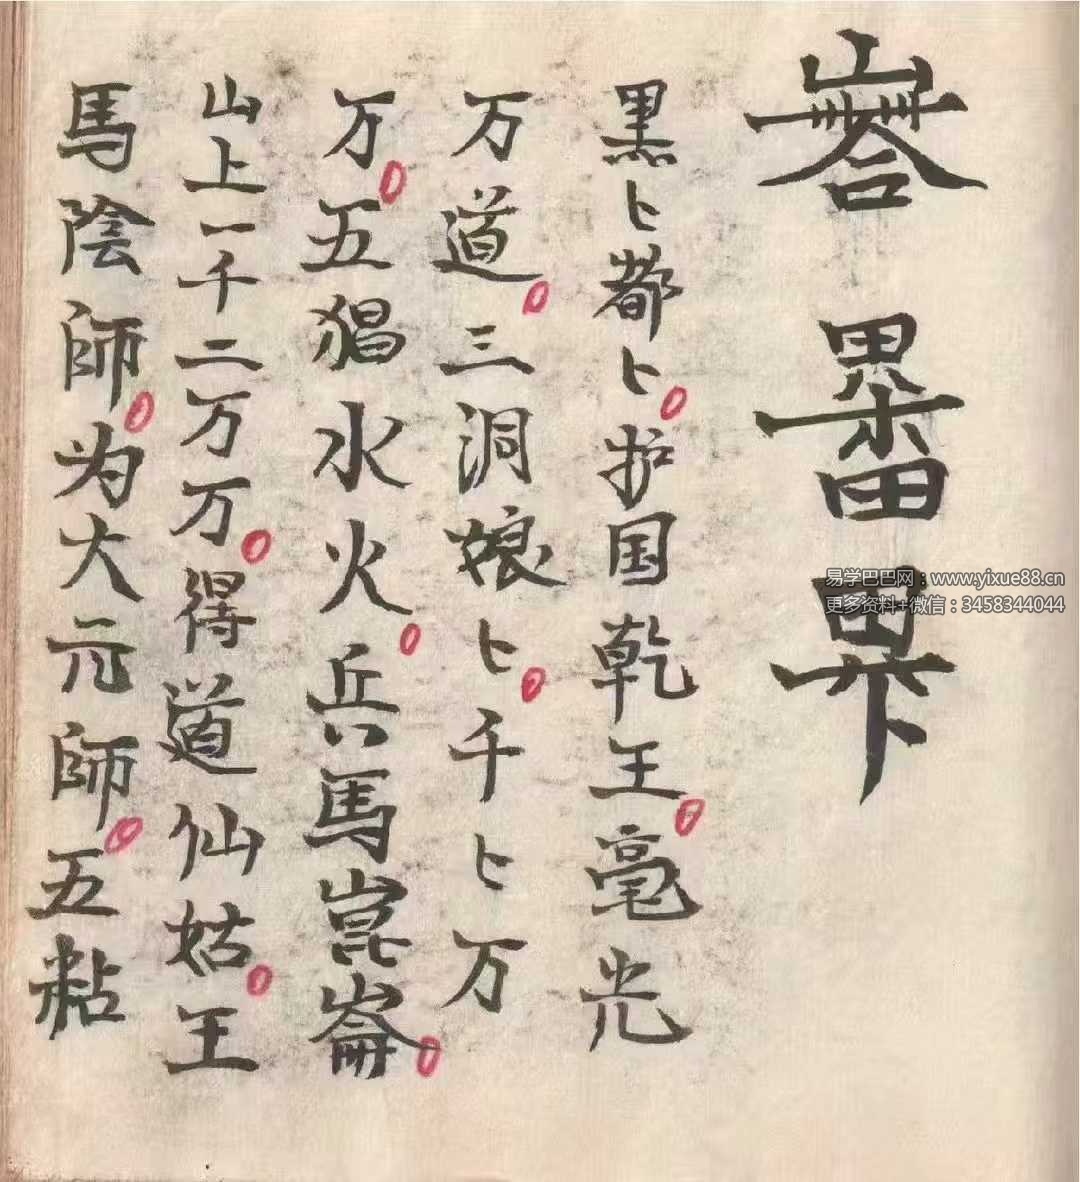 黑〻都〻。护国乾王。毫光
万道。三洞娘〻。千〻万
万。五猖水火。兵馬崑崙。
山上一千二万万。得道仙姑。王
馬陰師。为大元師。五粘
易学巴巴网：www.yixue88.cn
更多资料+微信：3458344044